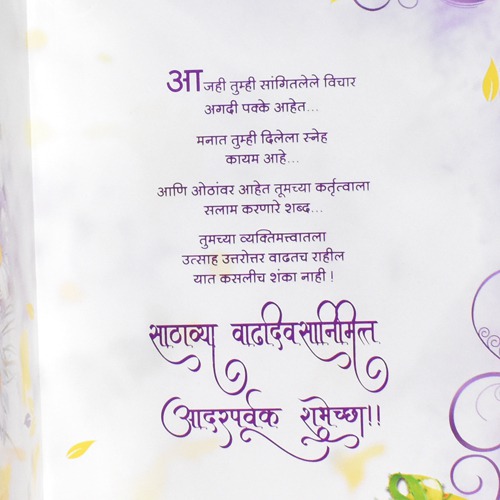 आजही तुम्ही सांगितलेले विचार
अगदी पक्के आहेत...
मनात तुम्ही दिलेला स्नेह
कायम आहे...
आणि ओठांवर आहेत तूमच्या कर्तृत्वाला
सलाम करणारे शब्द...
तुमच्या व्यक्तिमत्त्वातला
उत्साह उत्तरोत्तर वाढतच राहील
यात कसलीच शंका नाही !
साठाव्या वाढदिवसानिमित्त
आदरपूर्वक शुभेच्छा!!